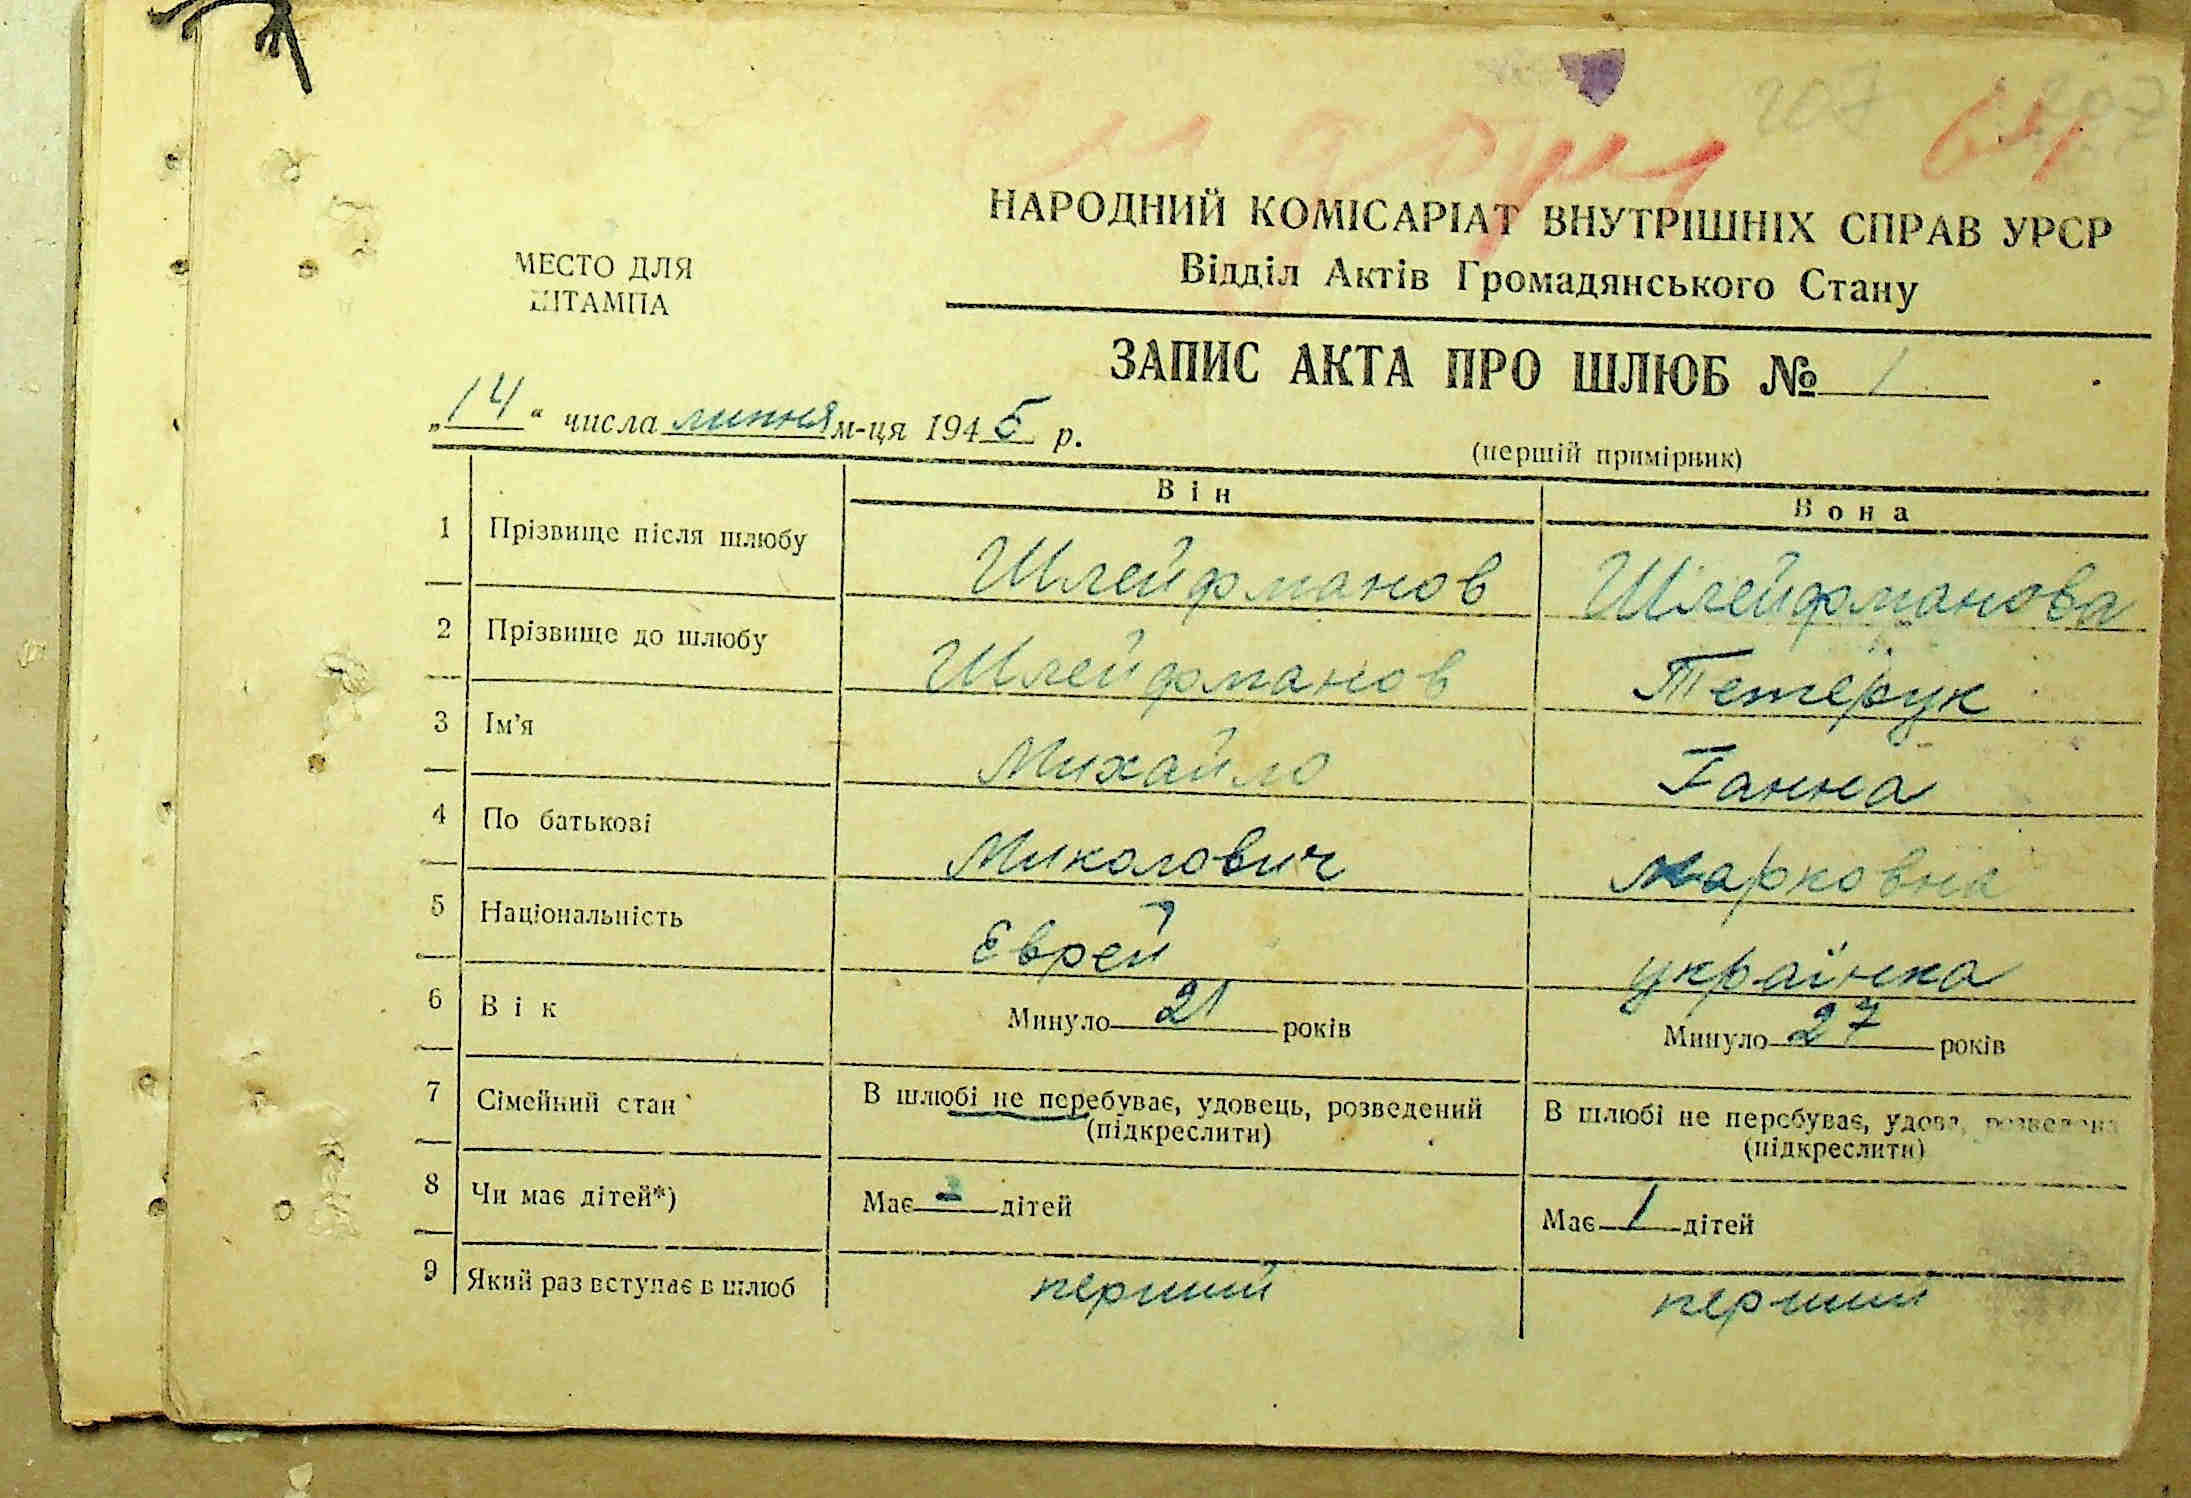 207
207
НАРОДНИЙ КОМІСАРІАТ ВНУТРІШНІХ СПРАВ УРСР
Відділ Актів Громадянського Стану
МЕСТО ДЛЯ
ШТАМПА
ЗАПИС АКТА ПРО ШЛЮБ № 1
„14“ числа липня м-ця 1945 р.
(перший примірник)
Він Вона
1 Прізвище після шлюбу Шлейфманов Шлейфманова
2 Прізвище до шлюбу Шлейфманов Тетерук
3 Ім'я Михайло Ганна
4 По батькові Миколович Марковна
5 Національність Єврей українка
6 Вік Минуло 21 років Минуло 27 років
7 Сімейний стан В шлюбі не перебуває, удовець, розведений В шлюбі не перебуває, удова, розведена
(підкреслити) (підкреслити)
8 Чи має дітей*) Має - дітей Має 1 дітей
9 Який раз вступає в шлюб перший перший